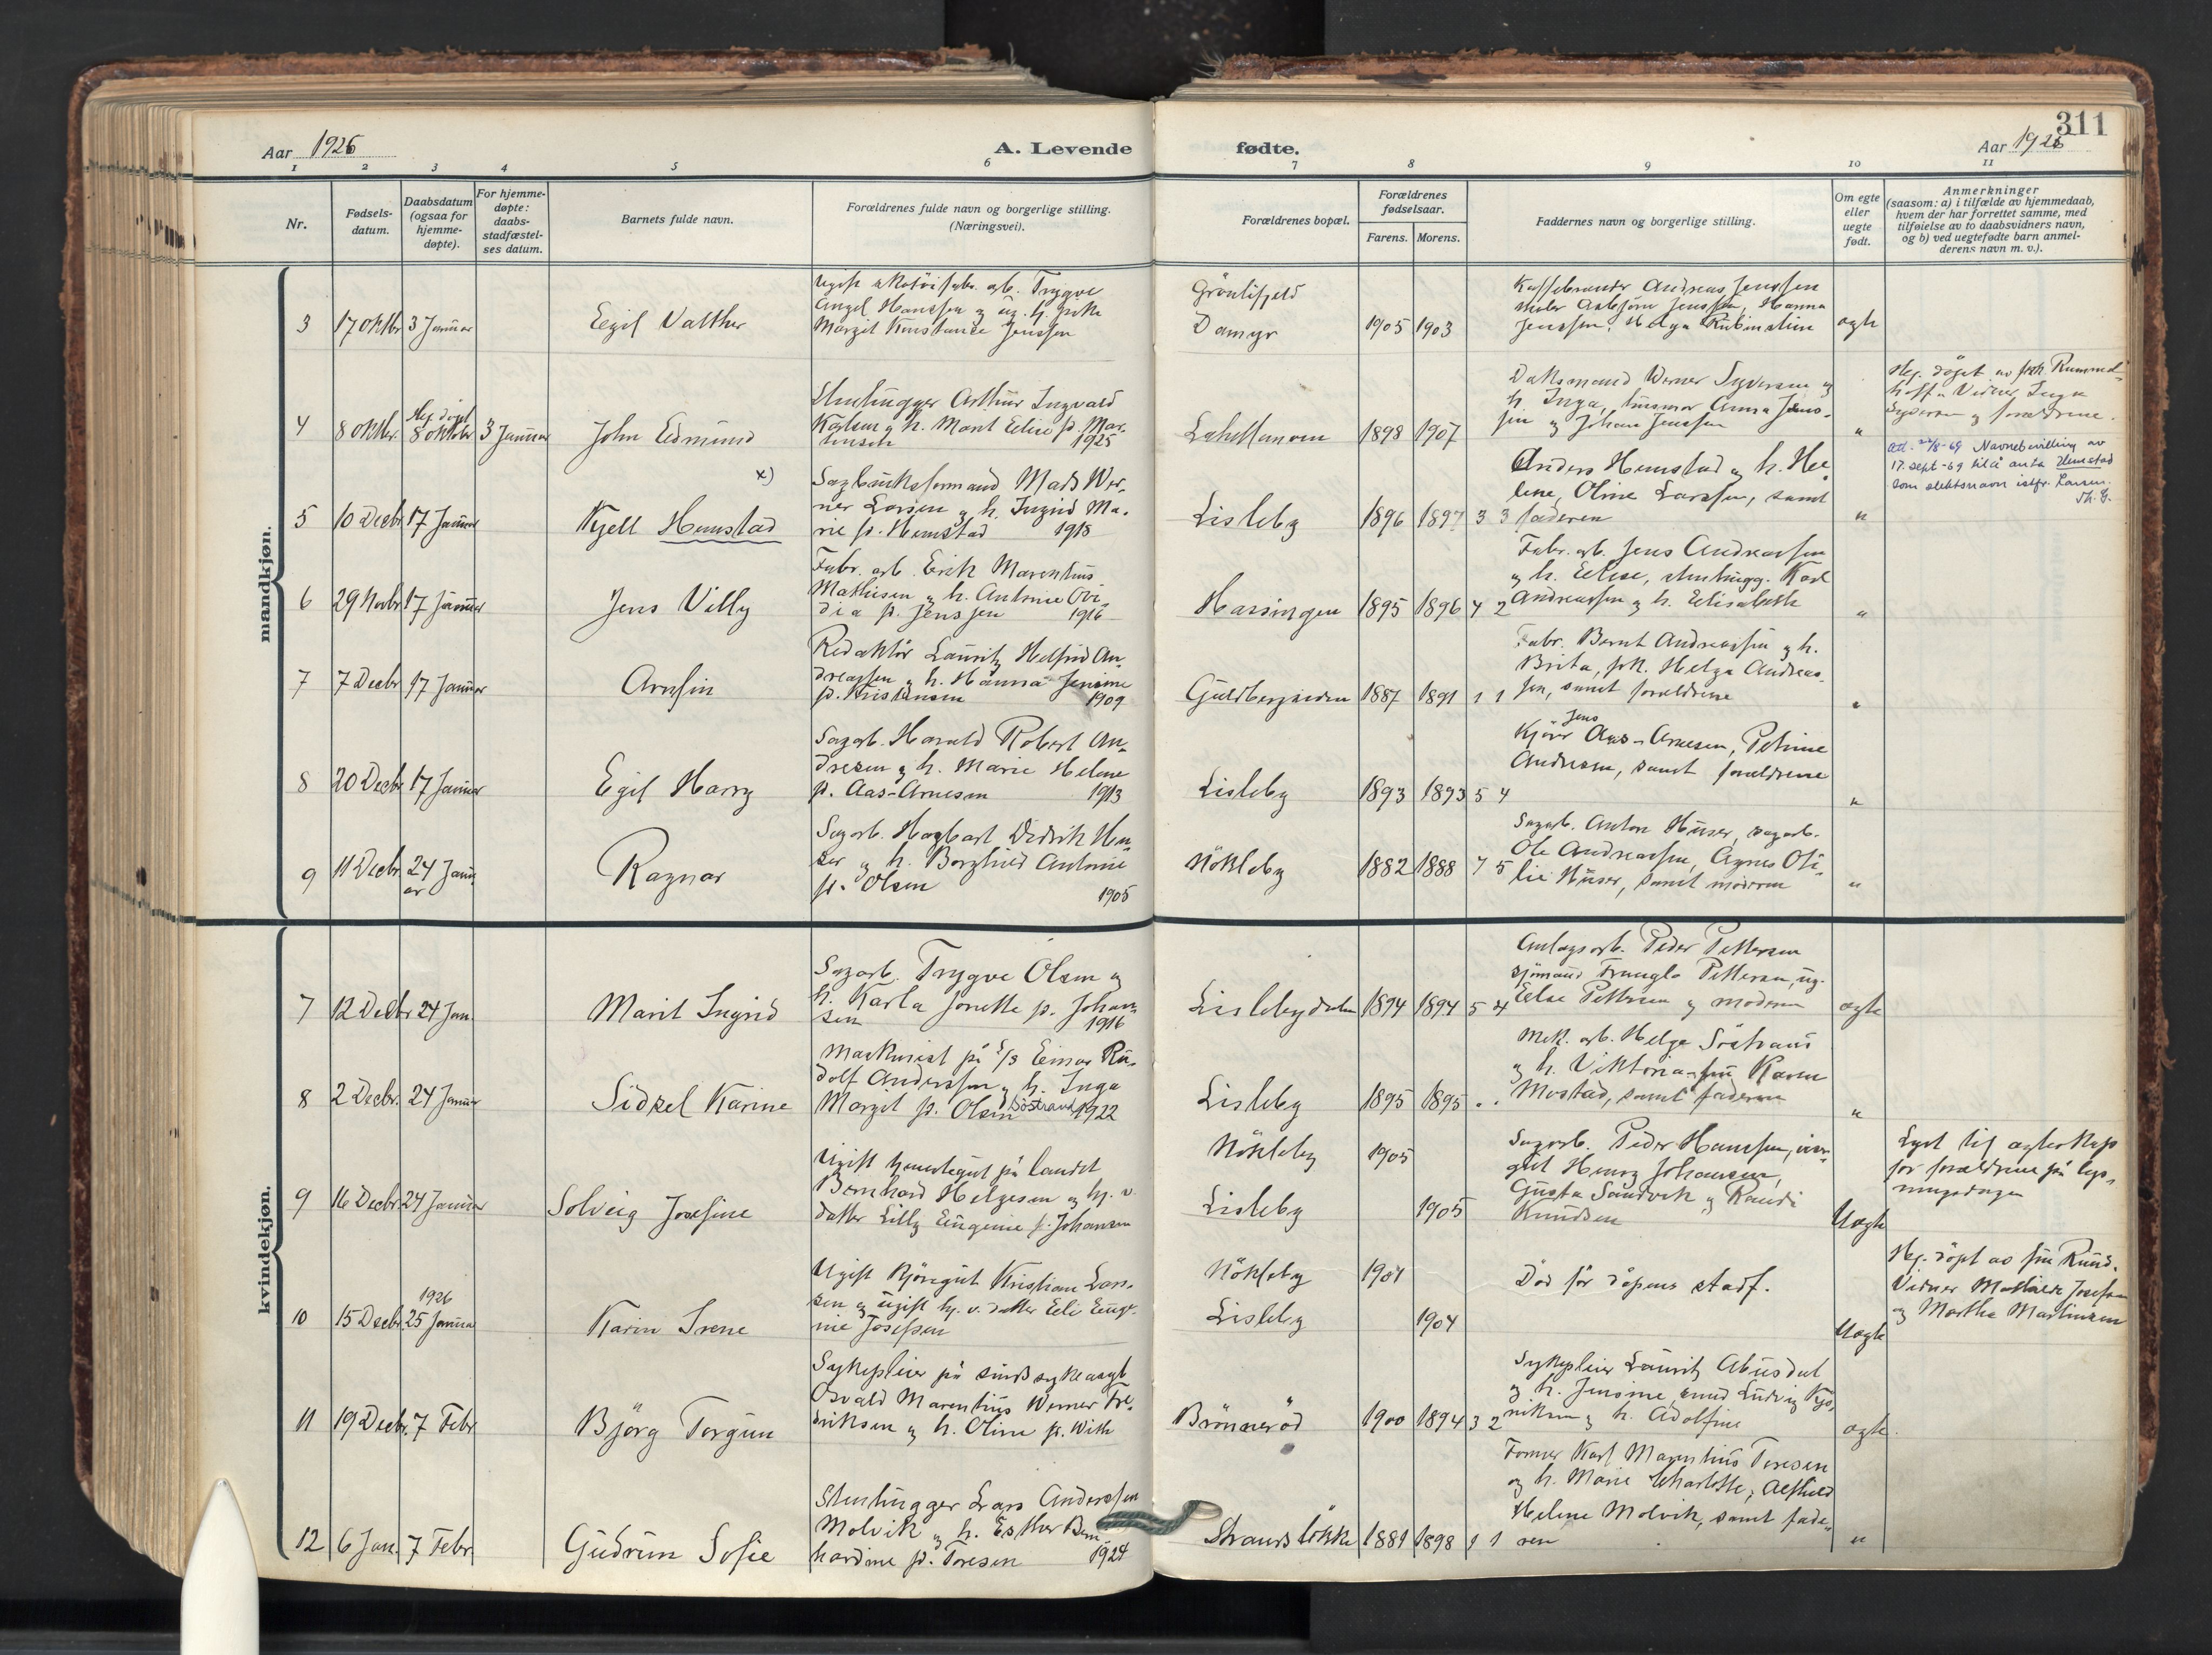 311
Aar 1926
A. Levende
fødte.
Aar 1926
1 2 3 4 5 6 7 8 9 10 11
Nr.
Fødsels-
datum.
Daabsdatum
(ogsaa for
hjemme-
døpte).
For hjemme-
døpte:
daabs-
stadfæstel-
ses datum.
Barnets fulde navn.
Forældrenes fulde navn og borgerlige stilling.
(Næringsvei).
Forældrenes bopæl.
Forældrenes
fødselsaar.
Farens. Morens.
Faddernes navn og borgerlige stilling.
Om egte
eller
uegte
født.
Anmerkninger
(saasom: a) i tilfælde av hjemmedaab,
hvem der har forrettet samme, med
tilføielse av to daabsvidners navn,
og b) ved uegtefødte barn anmel-
derens navn m. v.).
mandkjøn.
3 17 oktbr 3 Januar
Egil Valther
Trygve
Angel Hanssen og
Margit Konstance Jenssen
Grönlifjeld
Damyr
1905 1903
Andreas Jenssen
Asbjörn Jenssen, Hanna
Jenssen, Helga Rubinstein
ægte
4 8 oktbr. Hj. döpt 8 oktober 3 Januar
John Edmund
Stenhugger Arthur Ingvald
Karlsen og h. Marit Elise f. Mar-
tinsen 1925
Lahellemoen
1898 1907
Werner Syversen og
h. Inga, husmor Anna Jens-
sen og Johan Jenssen
"
Hj. döpt av frk. Rummel-
hoff. Vidner, Inga
Syversen og forældrene.
5 10 Decbr 17 Januar
x)
Kjell Hemstad
Sagbruksformand Mads Wer-
ner Larsen og h. Ingrid Ma-
rie f. Hemstad 1918
Lisleby
1896 1897 3 3
Anders Hemstad og h. He-
lene, Oline Larssen, samt
faderen
"
Navnebevilling av
17. sept -69 til å anta Hemstad
som slektsnavn istf. Larsen.
6 29 Novbr 17 Januar
Jens Villy
Fabr. arb. Erik Marenhus
Mathisen og h. Antonie Ovi-
dia f. Jenssen 1916
Hassingen
1895 1896 4 2
Fabr. arb. Jens Andreassen
og h. Elise, stenhugg. Karl
Andreassen og h. Elisabeth
"
7 7 Decbr 17 Januar
Arnfin
Redaktör Lauritz Helfrid An-
dreassen og h. Hanna Jensine
f. Kristensen 1909
Guldbergsiden
1887 1891 1 1
Fabr. Bernt Andreassen og h.
Brita, frk. Helga Andreas-
sen, samt forældrene
"
8 20 Decbr 17 Januar
Egil Harry
Sagarb. Harald Robert An-
dresen og h. Marie Helene
f. Aas-Arnesen 1913
Lisleby
1893 1893 5 4
Jens
Aas-Arnesen, Petrine
Andresen, samt forældrene
"
9 11 Decbr. 24 Janu-
ar
Ragnar
Sagarb. Hagbart Didrik Hu-
ser og h. Borghild Antonie
f. Olsen 1905
Nökleby
1882 1888 7 5
Sagarb. Anton Huser, sagarb.
Ole Andreassen, Agnes Oti-
lie Huser, samt moderen
"
kvindekjøn.
7 12 Decbr 24 Jan.
Marit Ingrid
Sagarb. Trygve Olsen og
h. Karla Jonette f. Johan-
sen 1916
Lislebydalen
1894 1894 5 4
Peder Pettersen
sjömand Pettersen, ug.
Else Pettersen og moderen
ægte
8 2 Decbr. 24 Januar
Sidsel Karine
Maskinist på S/S Einar Ru-
dolf Anderssen og h. Inga
Margit f. Olsen Söstrand 1922
Lisleby
1895 1895 " "
Mek. arb. Helge Söstrand
og h. Viktoria, fru Karen
Mostad, samt faderen
"
9 16 Decbr 24 Januar
Solveig Josefine
Ugift tjenestegut på landet
Bernhard Helgesen og hj. v.
datter Lilly Eugenie f. Johansen
Nökleby 1905
Lisleby 1905
Sagarb. Peder Hanssen,
Henry Johansen,
Gusta Sandvik og Randi
Knudsen
Uægte
Lyst til ægteskap
for forældrene på lys-
ningsdagen
10 15 Decbr 1926
25 Januar
Karin Irene
Ugift Kjöregut Kristian Lar-
sen og ugift hj. v. datter Eli Euge-
nie Josefsen
Nökleby 1901
Lisleby 1904
Död för döpens stadf.
Uægte
Hj. döpt av fru Rund.
Vidner Mathilde Josefsen
og Martha Martinsen
11 19 Decbr. 7 Febr
Björg Torgun
Sykepleier på sindssykeasyl
Osvald Marenhus Werner Fre-
driksen og h. Oline f. With
Brönneröd
1900 1894 3 2
Sykepleier Lauritz Abusdal
og h. Jensine, Ludvig
og h. Adolfine
ægte.
12 6 Jan. 7 Febr.
Gudrun Sofie
Stenhugger Lars Anderssen
Molvik og h. Esther Bern-
hardine f. Toresen 1924
Strandslökka
1889 1898 1 1
Former Karl Marenhus Toresen
og h. Marie Charlotte, Alfhild
Helene Molvik, samt fade-
ren
"